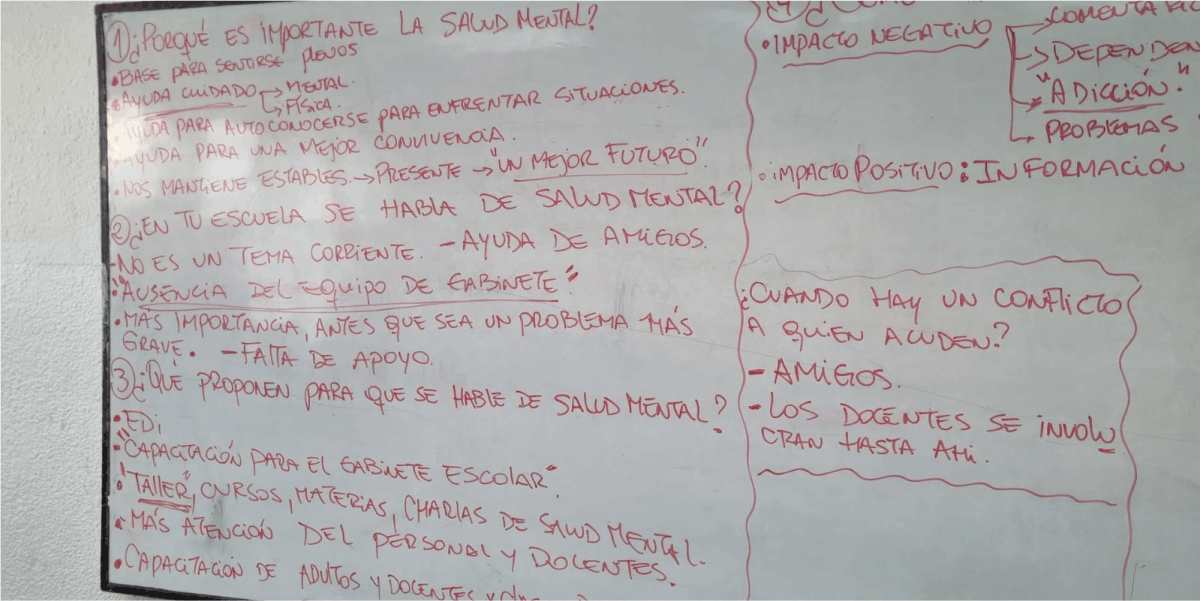 1) ¿PORQUÉ ES IMPORTANTE LA SALUD MENTAL?
• BASE PARA SENTIRSE PLENOS
• AYUDA CUIDADO → MENTAL.
→ FÍSICA.
AYUDA PARA AUTOCONOCERSE PARA ENFRENTAR SITUACIONES.
• AYUDA PARA UNA MEJOR CONVIVENCIA.
• NOS MANTIENE ESTABLES. → PRESENTE → "UN MEJOR FUTURO".
2) ¿EN TU ESCUELA SE HABLA DE SALUD MENTAL?
- NO ES UN TEMA CORRIENTE. - AYUDA DE AMIGOS.
• "AUSENCIA DEL EQUIPO DE GABINETE"
• MÁS IMPORTANCIA, ANTES QUE SEA UN PROBLEMA MÁS
GRAVE. - FALTA DE APOYO.
3) ¿QUÉ PROPONEN PARA QUE SE HABLE DE SALUD MENTAL?
• EDI
• "CAPACITACIÓN PARA EL GABINETE ESCOLAR"
• "TALLER", CURSOS, MATERIAS, CHARLAS DE SALUD MENTAL.
• MÁS ATENCIÓN DEL PERSONAL Y DOCENTES.
• CAPACITACIÓN DE ADULTOS Y DOCENTES
4) ¿
• IMPACTO NEGATIVO
→ COMENTA
→ DEPENDEN
→ "ADICCIÓN."
→ PROBLEMAS
• IMPACTO POSITIVO: INFORMACIÓN
¿CUANDO HAY UN CONFLICTO
A QUIEN ACUDEN?
- AMIGOS.
- LOS DOCENTES SE INVOLU
CRAN HASTA AHI.